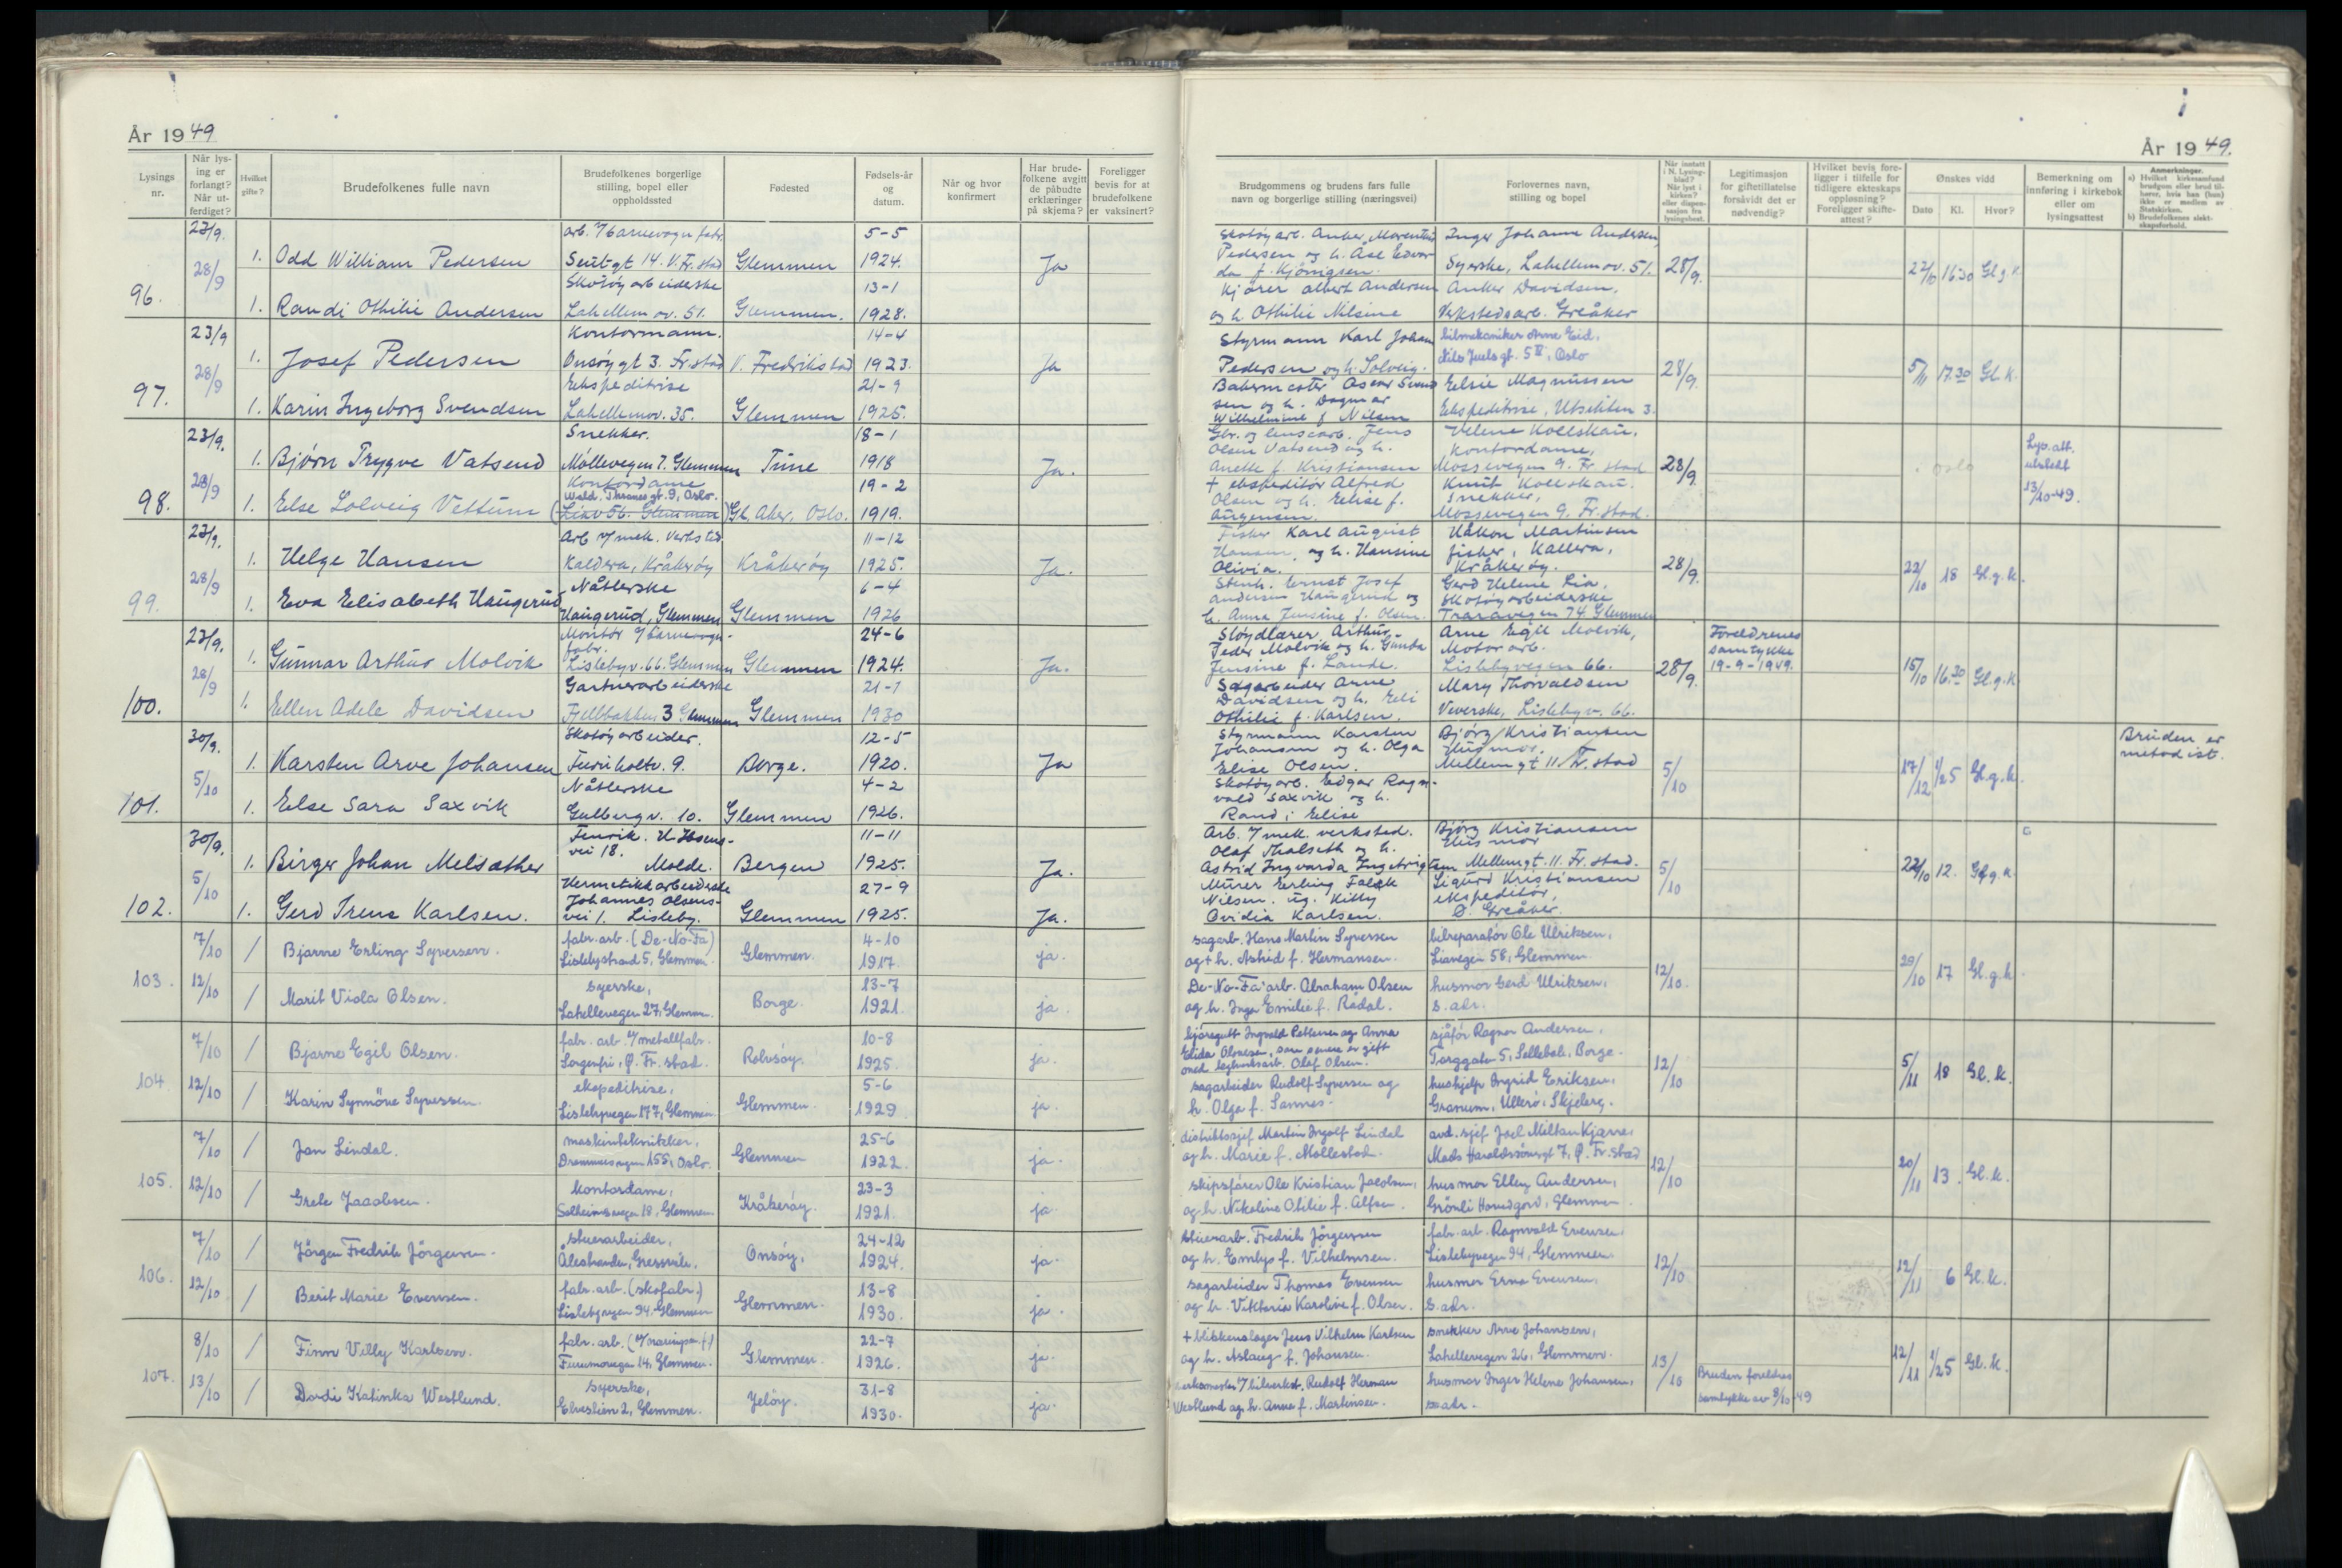 År 1949
Lysings nr.
Når lysing er forlangt? Når utferdiget?
Hvilket gifte?
Brudefolkenes fulle navn
Brudefolkenes borgerlige stilling, bopel eller oppholdssted
Fødested
Fødsels-år og datum.
Når og hvor konfirmert
Har brudefolkene avgitt de påbudte erklæringer på skjema?
Foreligger bevis for at brudefolkene er vaksinert?
96.
23/9.
28/9
1. Odd William Pedersen
arb. v/barnevogn fabr.
Seutgt 14. V. Fr.stad
Glemmen
5-5
1924.
Ja
1. Randi Othilie Andersen
Skotøyarbeiderske
Lahellemov. 51.
Glemmen.
13-1
1928.
97.
23/9
28/9
1. Josef Pedersen
Kontormann.
Onsøygt 3. Fr.stad
V. Fredrikstad
14-4
1923.
Ja
1. Karin Ingeborg Svendsen
Ekspeditrise
Lahellemov. 35.
Glemmen
21-9
1925.
98.
23/9.
28/9
1. Bjørn Trygve Vatsend
Snekker.
Møllevegen 7. Glemmen
Tune
18-1
1918
Ja.
1. Else Solveig Vettum
Kontordame
Wald. Thranes gt. 9, Oslo.
(Liav 56. Glemmen)
Gl. Aker, Oslo.
19-2
1919.
99.
23/9.
28/9
1. Helge Hansen
Arb v/mek. verksted
Kaldera, Kråkerøy
Kråkerøy
11-12
1925.
Ja.
1. Eva Elisabeth Haugerud
Nåtlerske
Haugerud, Glemmen
Glemmen
6-4
1926
100.
23/9.
28/9
1. Gunnar Arthur Molvik
Montør v/barnevogn-
fabr.
Lislebyv. 66. Glemmen
Glemmen
24-6
1924.
Ja.
1. Ellen Adele Davidsen
Gartnerarbeiderske
Fjellbakken 3 Glemmen
Glemmen
21-1
1930
101.
30/9.
5/10
1. Karsten Arve Johansen
Skotøyarbeider.
Furuholtv. 9.
Borge.
12-5
1920.
Ja
1. Else Sara Saxvik
Nåtlerske
Gulbergv. 10.
Glemmen
4-2
1926.
102.
30/9.
5/10
1. Birger Johan Melsæther
Fenrik. H. Ibsens-
vei 18.
Molde.
Bergen
11-11
1925.
Ja.
1. Gerd Irene Karlsen.
Hermetikkarbeiderske
Johannes Olsens-
vei 1. Lisleby.
Glemmen
27-9
1925.
Ja.
103.
7/10
12/10
/ Bjarne Erling Syversen.
fabr. arb. (De-No-Fa)
Lislebystrand 5, Glemmen.
Glemmen.
4-10
1917.
ja.
/ Marit Viola Olsen.
syerske,
Lahellevegen 27, Glemmen.
Borge.
13-7
1921.
ja.
104.
7/10
12/10
/ Bjarne Egil Olsen.
fabr. arb. v/metallfabr.
Sorgenfri, Ø. Fr. stad.
Rolvsøy.
10-8
1925.
ja.
/ Karin Synnöve Syversen.
ekspeditrise,
Lislebyvegen 177, Glemmen
Glemmen.
5-6
1929.
ja.
105.
7/10
12/10
/ Jan Lindal.
maskintekniker,
Drammensvegen 155, Oslo.
Glemmen
25-6
1922.
ja.
/ Grete Jacobsen.
kontordame,
Solheimsvegen 18, Glemmen.
Kråkerøy.
23-3
1921.
ja.
106.
7/10
12/10
/ Jörgen Fredrik Jörgensen.
stuerarbeider,
Ålestranden, Gressvik.
Onsöy.
24-12
1924.
ja.
/ Berit Marie Evensen.
fabr. arb. (skofabr.)
Lislebyvegen 94, Glemmen
Glemmen.
13-8
1930.
ja.
107.
8/10
13/10
/ Finn Villy Karlsen.
fabr. arb.
Furumovegen 14, Glemmen.
Glemmen.
22-7
1926.
ja.
/ Dordi Katinka Westlund.
syerske,
Elvestien 2, Glemmen.
Jelöy.
31-8
1930.
ja.
År 1949.
Brudgommens og brudens fars fulle navn og borgerlige stilling (næringsvei)
Forlovernes navn, stilling og bopel
Når inntatt i N. Lysingblad? Når lyst i kirken? eller dispensasjon fra lysingsbest.
Legitimasjon for giftetillatelse forsåvidt det er nødvendig?
Hvilket bevis foreligger i tilfelle for tidligere ekteskaps oppløsning? Foreligger skifteattest?
Ønskes vidd
Dato Kl. Hvor?
Bemerkning om innføring i kirkebok eller om lysingsattest
Anmerkninger.
a) Hvilket kirkesamfund brudgom eller brud tilhører, hvis han (hun) ikke er medlem av Statskirken.
b) Brudefolkenes slektskapsforhold.
Skotøyarb. Anker Marentius
Pedersen og h. Åse Edvar-
da f. Kjönigsen.
Kjører Albert Andersen
og h. Othilie Nilsine
Inger Johanne Andersen
Syerske, Lahellemov. 51.
Anker Davidsen,
Verkstedsarb. Greåker
28/9.
22/10 16.30 Gl.g.k.
Styrmann Karl Johan
Pedersen og h. Solveig.
Bakermester Oscar Svend
sen og h. Dagmar
Wilhelmine f. Nilsen
bilmekaniker Arne Eid,
Nils Juels gt. 5 II, Oslo
Elsie Magnussen
Ekspeditrise, Utsikten 3.
28/9.
5/11 17.30 Gl. K.
Gbr. og linsearb. Jens
Olsen Vatsend og h.
Anette f. Kristiansen
+ ekspeditör Alfred
Olsen og h. Elise f.
Jürgensen.
Velene Kollskau,
Kontordame,
Mossevegen 9. Fr. stad
Knut Kollskau.
Snekker,
Mossevegen 9. Fr. stad.
28/9
Oslo
Lys. att.
utstedt
13/10-49.
Fisker Karl August
Hansen og h. Hansine
Olivia.
Stenh. Ernst Josef
Andersen Haugerud og
h. Anna Jensine f. Olsen.
Håkon Martinsen
fisker, Kallera,
Kråkerøy.
Gerd Helene Lia.
Skotøyarbeiderske
Traravegen 74 Glemmen
28/9.
22/10 18 Gl.g.k.
Sløydlærer Arthur
Peder Molvik og h. Gunda
Jensine f. Lande.
Sagarbeider Arne
Davidsen og h. Eli
Othilie f. Karlsen.
Arne Egil Molvik,
Motorarb.
Lislebyvegen 66.
Mary Thorvaldsen
Veverske, Lislebyv. 66.
28/9.
Foreldrenes
samtykke
19-9-1949.
15/10 16.30 Gl.g.k
Styrmann Karsten
Johansen og h. Olga
Elise Olsen.
Skotøyarb. Edgar Ragn-
vald Saxvik og h.
Randi Elise
Bjørg Kristiansen
Husmor.
Mellemgt 11. Fr.stad
5/10
17/12 1/25 Gl.g.k.
Bruden er
metodist.
Arb. v/mek. verksted.
Olaf Thalseth og h.
Astrid Ingvarda Ingebrigtsen
Murer Erling Falck
Nilsen. ug. Kitty
Ovidia Karlsen.
Bjørg Kristiansen
Husmor
Mellemgt. 11. Fr. stad.
Sigurd Kristiansen
ekspeditör,
Ø. Greåker.
5/10
22/10 12. Gl.g.k.
sagarb. Hans Martin Syversen
og + h. Astrid f. Hermansen.
De-No-Fa arb. Abraham Olsen
og h. Inga Emilie f. Rådal.
bilreparatör Ole Ulriksen,
Liavegen 58, Glemmen.
husmor Gerd Ulriksen,
s. adr.
12/10.
29/10 17 Gl.g.k.
Anna
som senere er gift
Olaf Olsen.
sagarbeider Rudolf Syversen og
h. Olga f. Sannes.
sjåför Ragnar Andersen,
Torggaten 5, Sellebakk, Borge.
hushjelp Ingrid Eriksen,
Granum, Ullerø, Skjeberg.
12/10
5/11 18 Gl. k.
distriktssjef Martin Ingolf Lindal
og h. Marie f. Mollestad.
skipsfører Ole Kristian Jacobsen,
og h. Nikoline Otilie f. Alfsen.
avd. sjef Joel Miltan Kjærre,
Mads Haraldssönsgt 7, Ø. Fr.stad
husmor Elley Andersen,
Grönli Hovedgård, Glemmen
12/10
20/11 13. Gl. k.
stuerarb. Fredrik Jörgensen
og h. Emlys f. Vilhelmsen.
sagarbeider Thomas Evensen
og h. Viktoria Karoline f. Olsen.
fabr. arb. Ragnvald Evensen,
Lislebyvegen 94, Glemmen
husmor Erna Evensen,
s. adr.
12/10
12/11 6 Gl. k.
+ blikkenslager Jens Vilhelm Karlsen
og h. Aslaug f. Johansen.
verksmester v/bilverkst. Rudolf Herman
Westlund og h. Anna f. Martinsen.
snekker Arne Johansen,
Lahellevegen 26, Glemmen.
husmor Inger Helene Johansen,
s. adr.
13/10
Bruden foreldres
samtykke av 8/10-49
12/11 1/25 Gl. k.